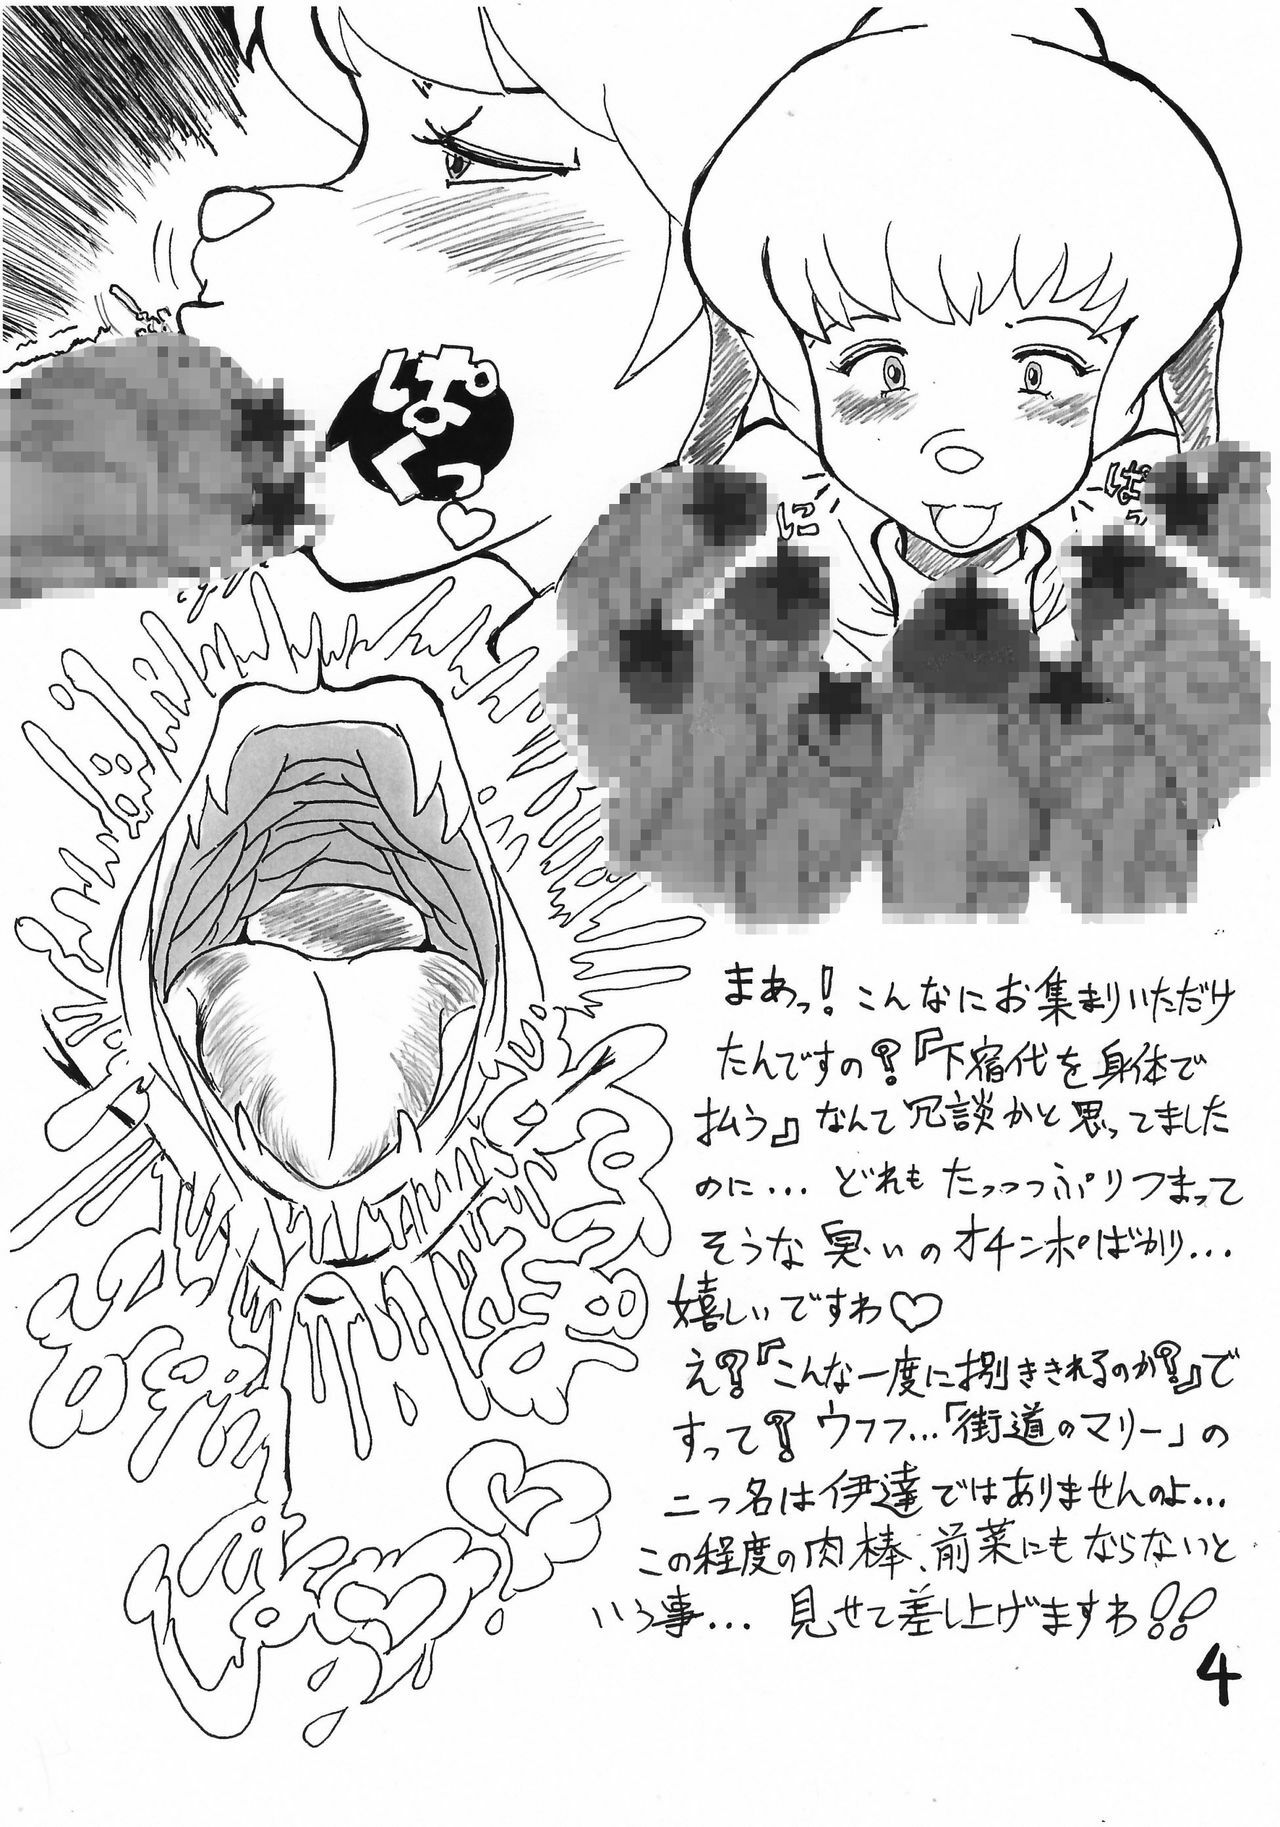 ぱくっ♡
にぱっ
まあっ！こんなにお集まりいただけ
たんですの！？『下宿代を身体で
払う』なんて冗談かと思ってました
のに… どれもたっっっぷりつまって
そうな臭いのオチンポばかり…
嬉しいですわ♡
え！？『こんな一度に捌ききれるのか！？』で
すって！？ウフフ…「街道のマリー」の
二つ名は伊達ではありませんのよ…
この程度の肉棒、前菜にもならないと
いう事… 見せて差し上げますわ！！
4